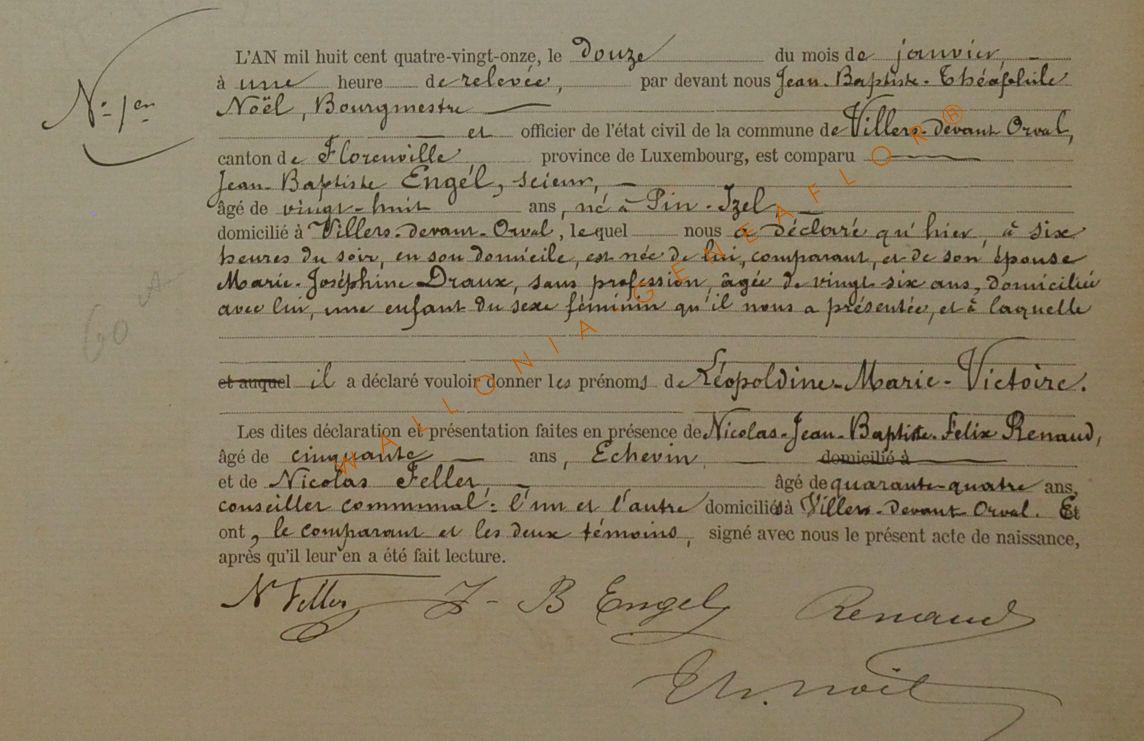 N° 1er
L'AN mil huit cent quatre-vingt-onze, le douze du mois de janvier,
à une heure de relevée, par devant nous Jean-Baptiste-Théophile
Noël, Bourgmestre
et officier de l'état civil de la commune de Villers-devant-Orval,
canton de Florenville, province de Luxembourg, est comparu
Jean-Baptiste Engél, scieur,
âgé de vingt-huit ans, né à Pin-Izel
domicilié à Villers-devant-Orval, lequel nous a déclaré qu'hier, à six
heures du soir, en son domicile, est née de lui, comparant, et de son épouse
Marie-Joséphine Draux, sans profession, âgée de vingt-six ans, domiciliée
avec lui, une enfant du sexe féminin qu'il nous a présentée, et à laquelle
et auquel il a déclaré vouloir donner les prénoms de Léopoldine-Marie-Victoire.
Les dites déclaration et présentation faites en présence de Nicolas-Jean-Baptiste-Felix Renaud,
âgé de cinquante ans, Echevin domicilié à
et de Nicolas Feller, âgé de quarante-quatre ans,
conseiller communal: l'un et l'autre domiciliés à Villers-devant-Orval. Et
ont, le comparant et les deux témoins, signé avec nous le présent acte de naissance,
après qu'il leur en a été fait lecture.
N Feller J-B Engel Renaud
Th. Noël
WALLONIA GENEAFLOR®